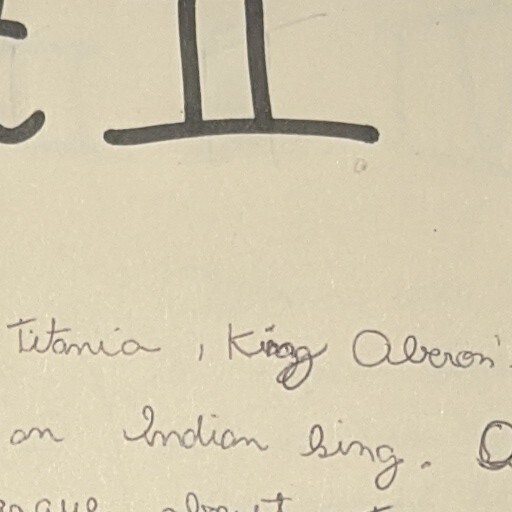 t II
Titania , King Oberon'
an Indian King. O
about